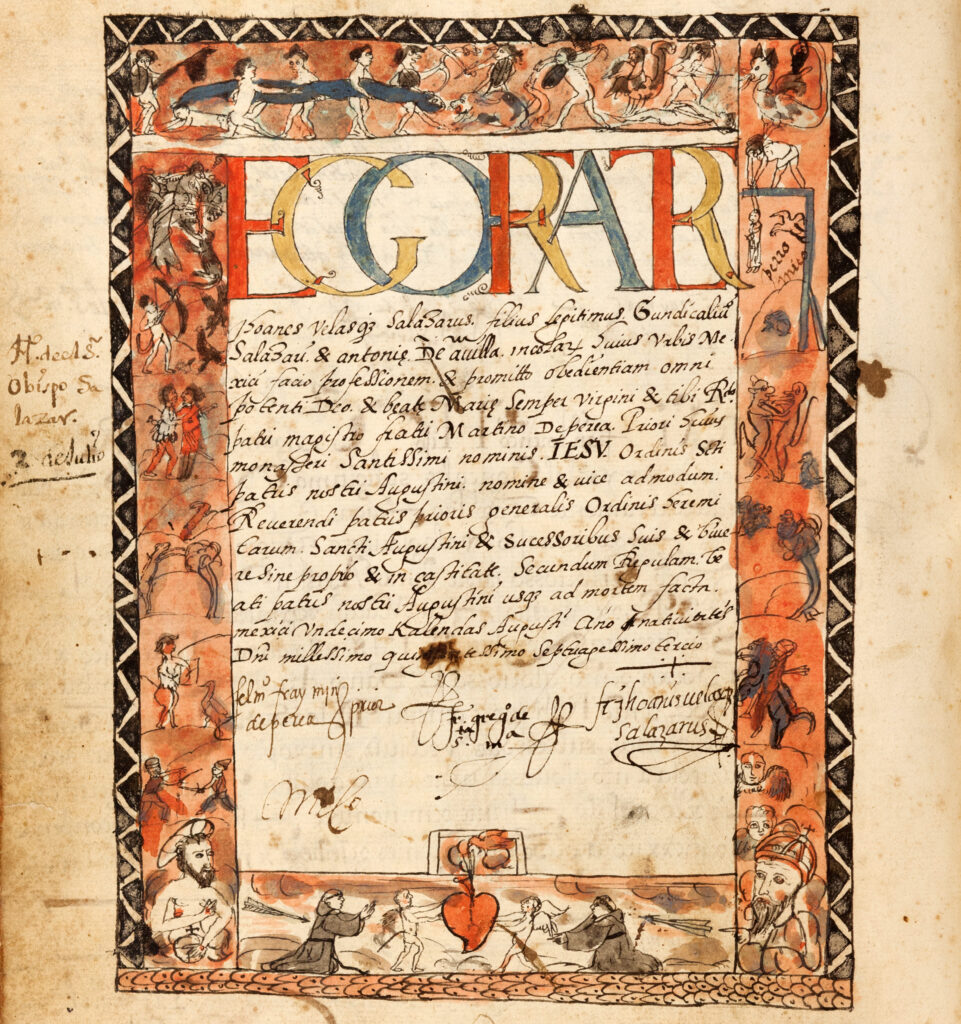 EGO FRATR
Jhoanes Velasqz Salazarus. filius legitimus. Gundicalvi
Salazari. & antonię. De avilla. incolarz huius Urbis Me-
xici facio professionem. & promitto obedientiam omni
potenti Deo. & beatę Marię Semper Virgini & tibi Rdo
patri magistro fratri Martino De perea. Priori huius
monasteri Santissimi nominis. IESV. Ordinis Scti
patris nostri Augustini. nomine & vice admodum.
Reverendi patris prioris generalis Ordinis heremi
tarum. Sancti Augustini & sucessoribus suis & vive
re sine proprio & in castitate. Secundum Regulam. be
ati patris nostri Augustini usqz ad mortem facta.
mexici Undecimo Kalendas Augusti Año nativitatis
Dni millessimo quingentessimo septuagessimo tercio
fray min
de perea prior
fr. greg de
sta
ma
fr Jhoanis velazqz
salazarus
perro
mico
del Sr.
Obispo Sa
lazar.
2 de Julio